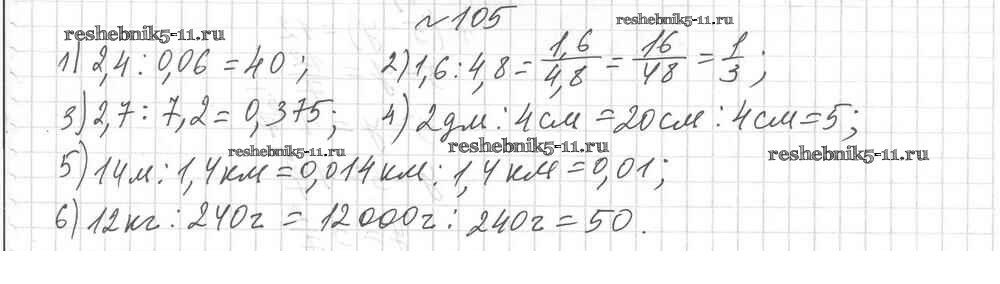 №105
reshebnik5-11.ru
reshebnik5-11.ru
1) 2,4 : 0,06 = 40; 2) 1,6 : 4,8 = 1,6/4,8 = 16/48 = 1/3;
3) 2,7 : 7,2 = 0,375; 4) 2дм : 4см = 20см : 4см = 5;
reshebnik5-11.ru
reshebnik5-11.ru
reshebnik5-11.ru
5) 14м : 1,4км = 0,014км : 1,4км = 0,01;
6) 12кг : 240г = 12000г : 240г = 50.